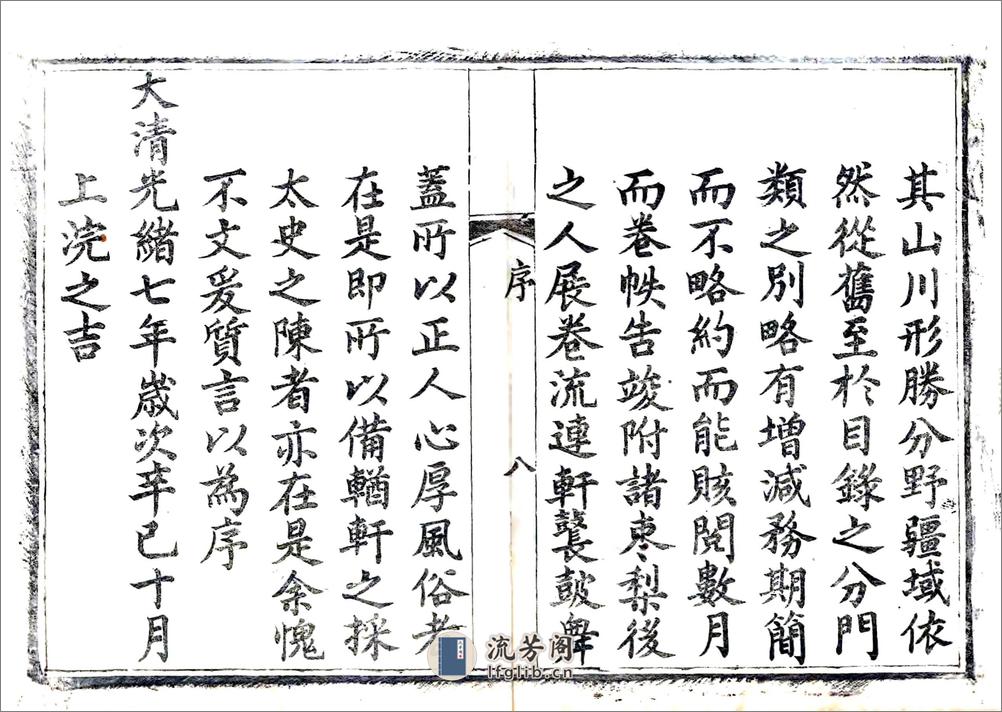 其山川形勝分野疆域依
然從舊至於目錄之分門
類之別略有增減務期簡
而不略約而能賅閱數月
而卷帙告竣附諸棗梨後
之人展卷流連軒鼚鼓舞
序
八
蓋所以正人心厚風俗者
在是即所以備輶軒之採
太史之陳者亦在是余愧
不文爰質言以為序
大清光緒七年歲次辛巳十月
上浣之吉
流芳阁
lfglib.cn